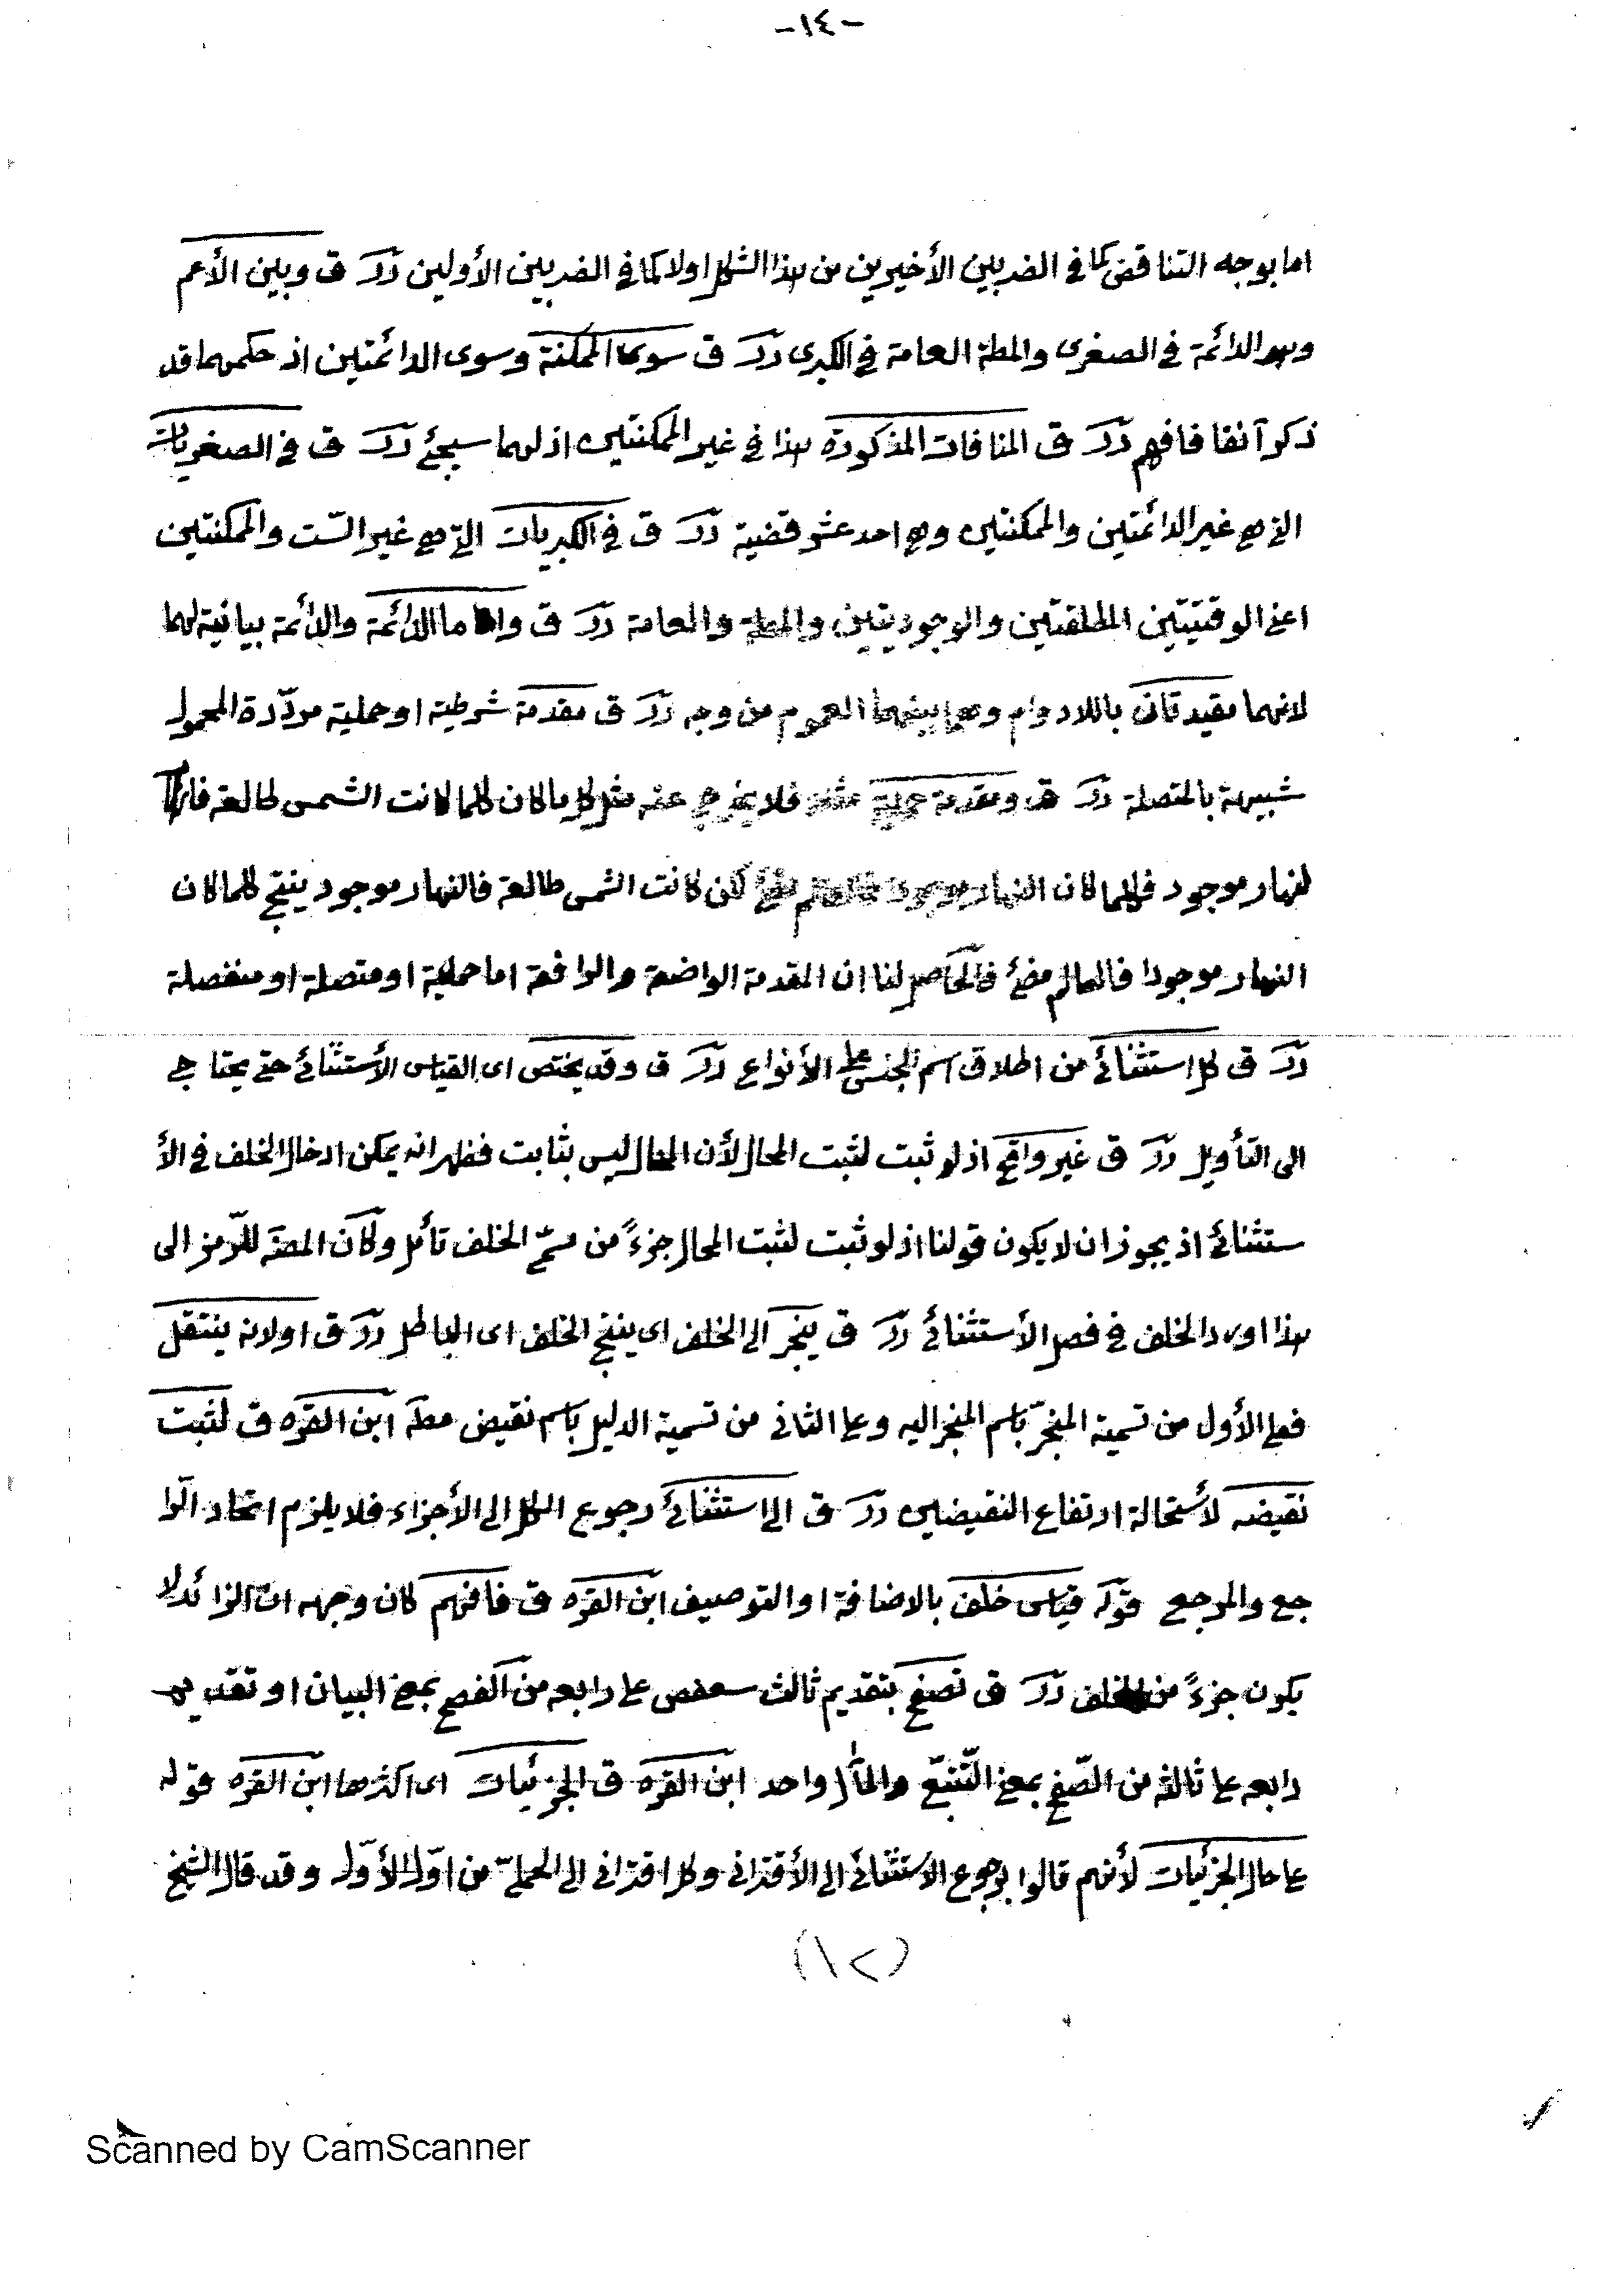 -١٤-
اما بوجه التناقض كما في الضربين الأخيرين من هذا الشكل اولا كما في الضربين الأولين رَرَ ق وبين الأعم
وهو الدائمة في الصغرى والمطة العامة في الكبرى رَرَ ق سوى الممكنة وسوى الدائمتين اذ حكمهما قد
ذكر آنفا فافهم رَرَ ق المنافات المذكورة هذا في غير الممكنتين اذ لهما سيجئ رَرَ ق في الصغريات
التي هي غير الدائمتين والممكنتين وهي احد عشر قضية رَرَ ق في الكبريات التي هي غير الست والممكنتين
اعني الوقتيتين المطلقتين والوجوديتين والمطة والعامة رَرَ ق واما الدائمة والدائمة بيانية لهما
لانهما مقيدتان باللادوام وهما بينهما العموم من وجه رَرَ ق مقدمة شرطية او حملية مردّدة المحمول
شبيهة بالمتصلة رَرَ ق ومقدمة حملية فلا يخرج عنه مثل كلما كان كلما كانت الشمس طالعة فالنهار
لنهار موجود فكلما كان النهار موجودا فالعالم مضئ لكن كانت الشمس طالعة فالنهار موجود ينتج كلما كان
النهار موجودا فالعالم مضئ فالحاصل لنا ان المقدمة الواضعة والرافعة اما حملية او متصلة او منفصلة
رَرَ ق كل استثنائي من اطلاق اسم الجنس على الأنواع رَرَ ق وقد يختص اى القياس الأستثنائي حتى يحتاج
الى التأويل رَرَ ق غير واقع اذ لو ثبت لثبت المحال لأن المحال ليس بثابت فظهر انه يمكن ادخال الخلف في الأ
ستثنائي اذ يجوز ان لا يكون قولنا اذ لو ثبت لثبت المحال جزءً من مسمّى الخلف تأمل وكان المصَ للرّمز الى
هذا اورد الخلف في فصل الأستثنائي رَرَ ق ينجر الى الخلف اى ينتج الخلف اى الباطل رَرَ ق اولانه ينتقل
فعلى الأول من تسمية المنجرّ باسم المنجر اليه وعلى الثاني من تسمية الدليل باسم نقيض مطَ ابن القره ق لثبت
نقيضه لأستحالة ارتفاع النقيضين رَرَ ق الى استثنائي رجوع الكل الى الأجزاء فلا يلزم اتحاد الرّا
جع والمرجع قوله قياس خلف بالاضافة او التوصيف ابن القره ق فافهم كان وجهه انّ الزائد لا
يكون جزءً من الخلف رَرَ ق تصفح بتقديم ثالث سعفص على رابعه من الفصح بمعنى البيان او تقديم
رابعه على ثالثه من الصّفح بمعنى التّتبّع والمآل واحد ابن القره ق الجزئيات اى اكثرها ابن القره قوله
على حال الجزئيات لأنهم قالوا برجوع الاستثنائي الى الأقتراني وكل اقتراني الى الحمليّ من اوّل الأوّل وقد قال الشيخ
(١٢)
Scanned by CamScanner